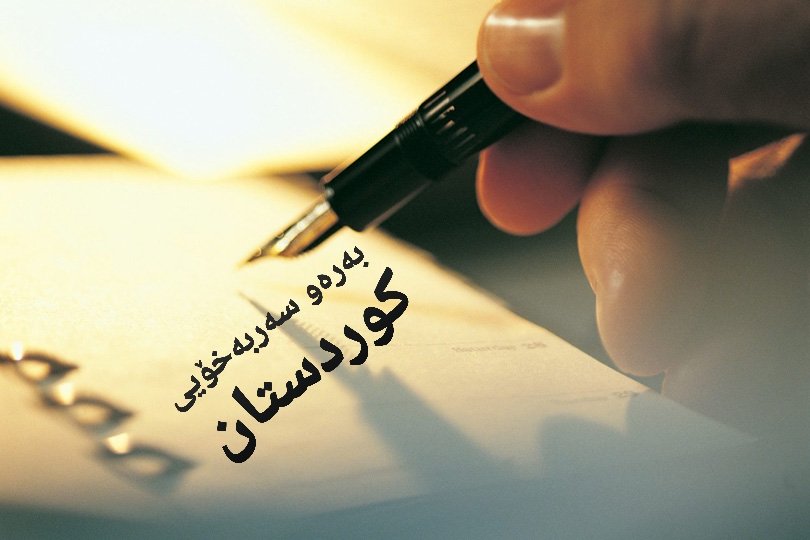 بەرەو سەربەخۆیی
کوردستان